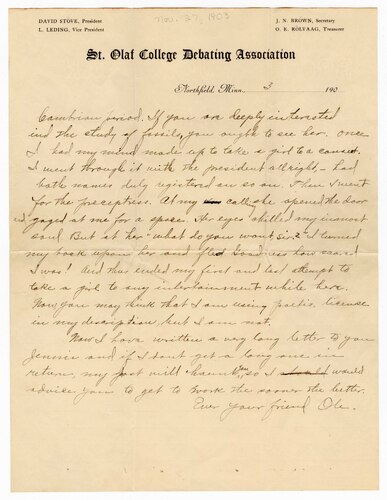 Nov. 27, 1903
DAVID STOVE, President
L. LEDING, Vice President
J. N. BROWN, Secretary
O. E. ROLVAAG, Treasurer
St. Olaf College Debating Association
Northfield, Minn. 3 190
Cambrian period. If you are deeply interested
in the study of fossils, you ought to see her. Once
I had my mind made up to take a girl to a concert.
I went through it with the president allright, – had
both names duly registered an so on. Then I went
for the preceptress. At my call she opened the door
gazed at me for a space. Her eyes chilled my inmost
soul. But at her "what do you want sir?" I turned
my back upon her and fled. Goodness how scared
I was! And thus ended my first and last attempt to
take a girl to any entertainment while here.
Now you may think that I am using poetic license
in my description, but I am not.
Now I have written a very long letter to you
Jennie and if I don't get a long one in
return, my gost will haunt you, so I should would
advise you to get to work the sooner the better.
Ever your friend Ole.